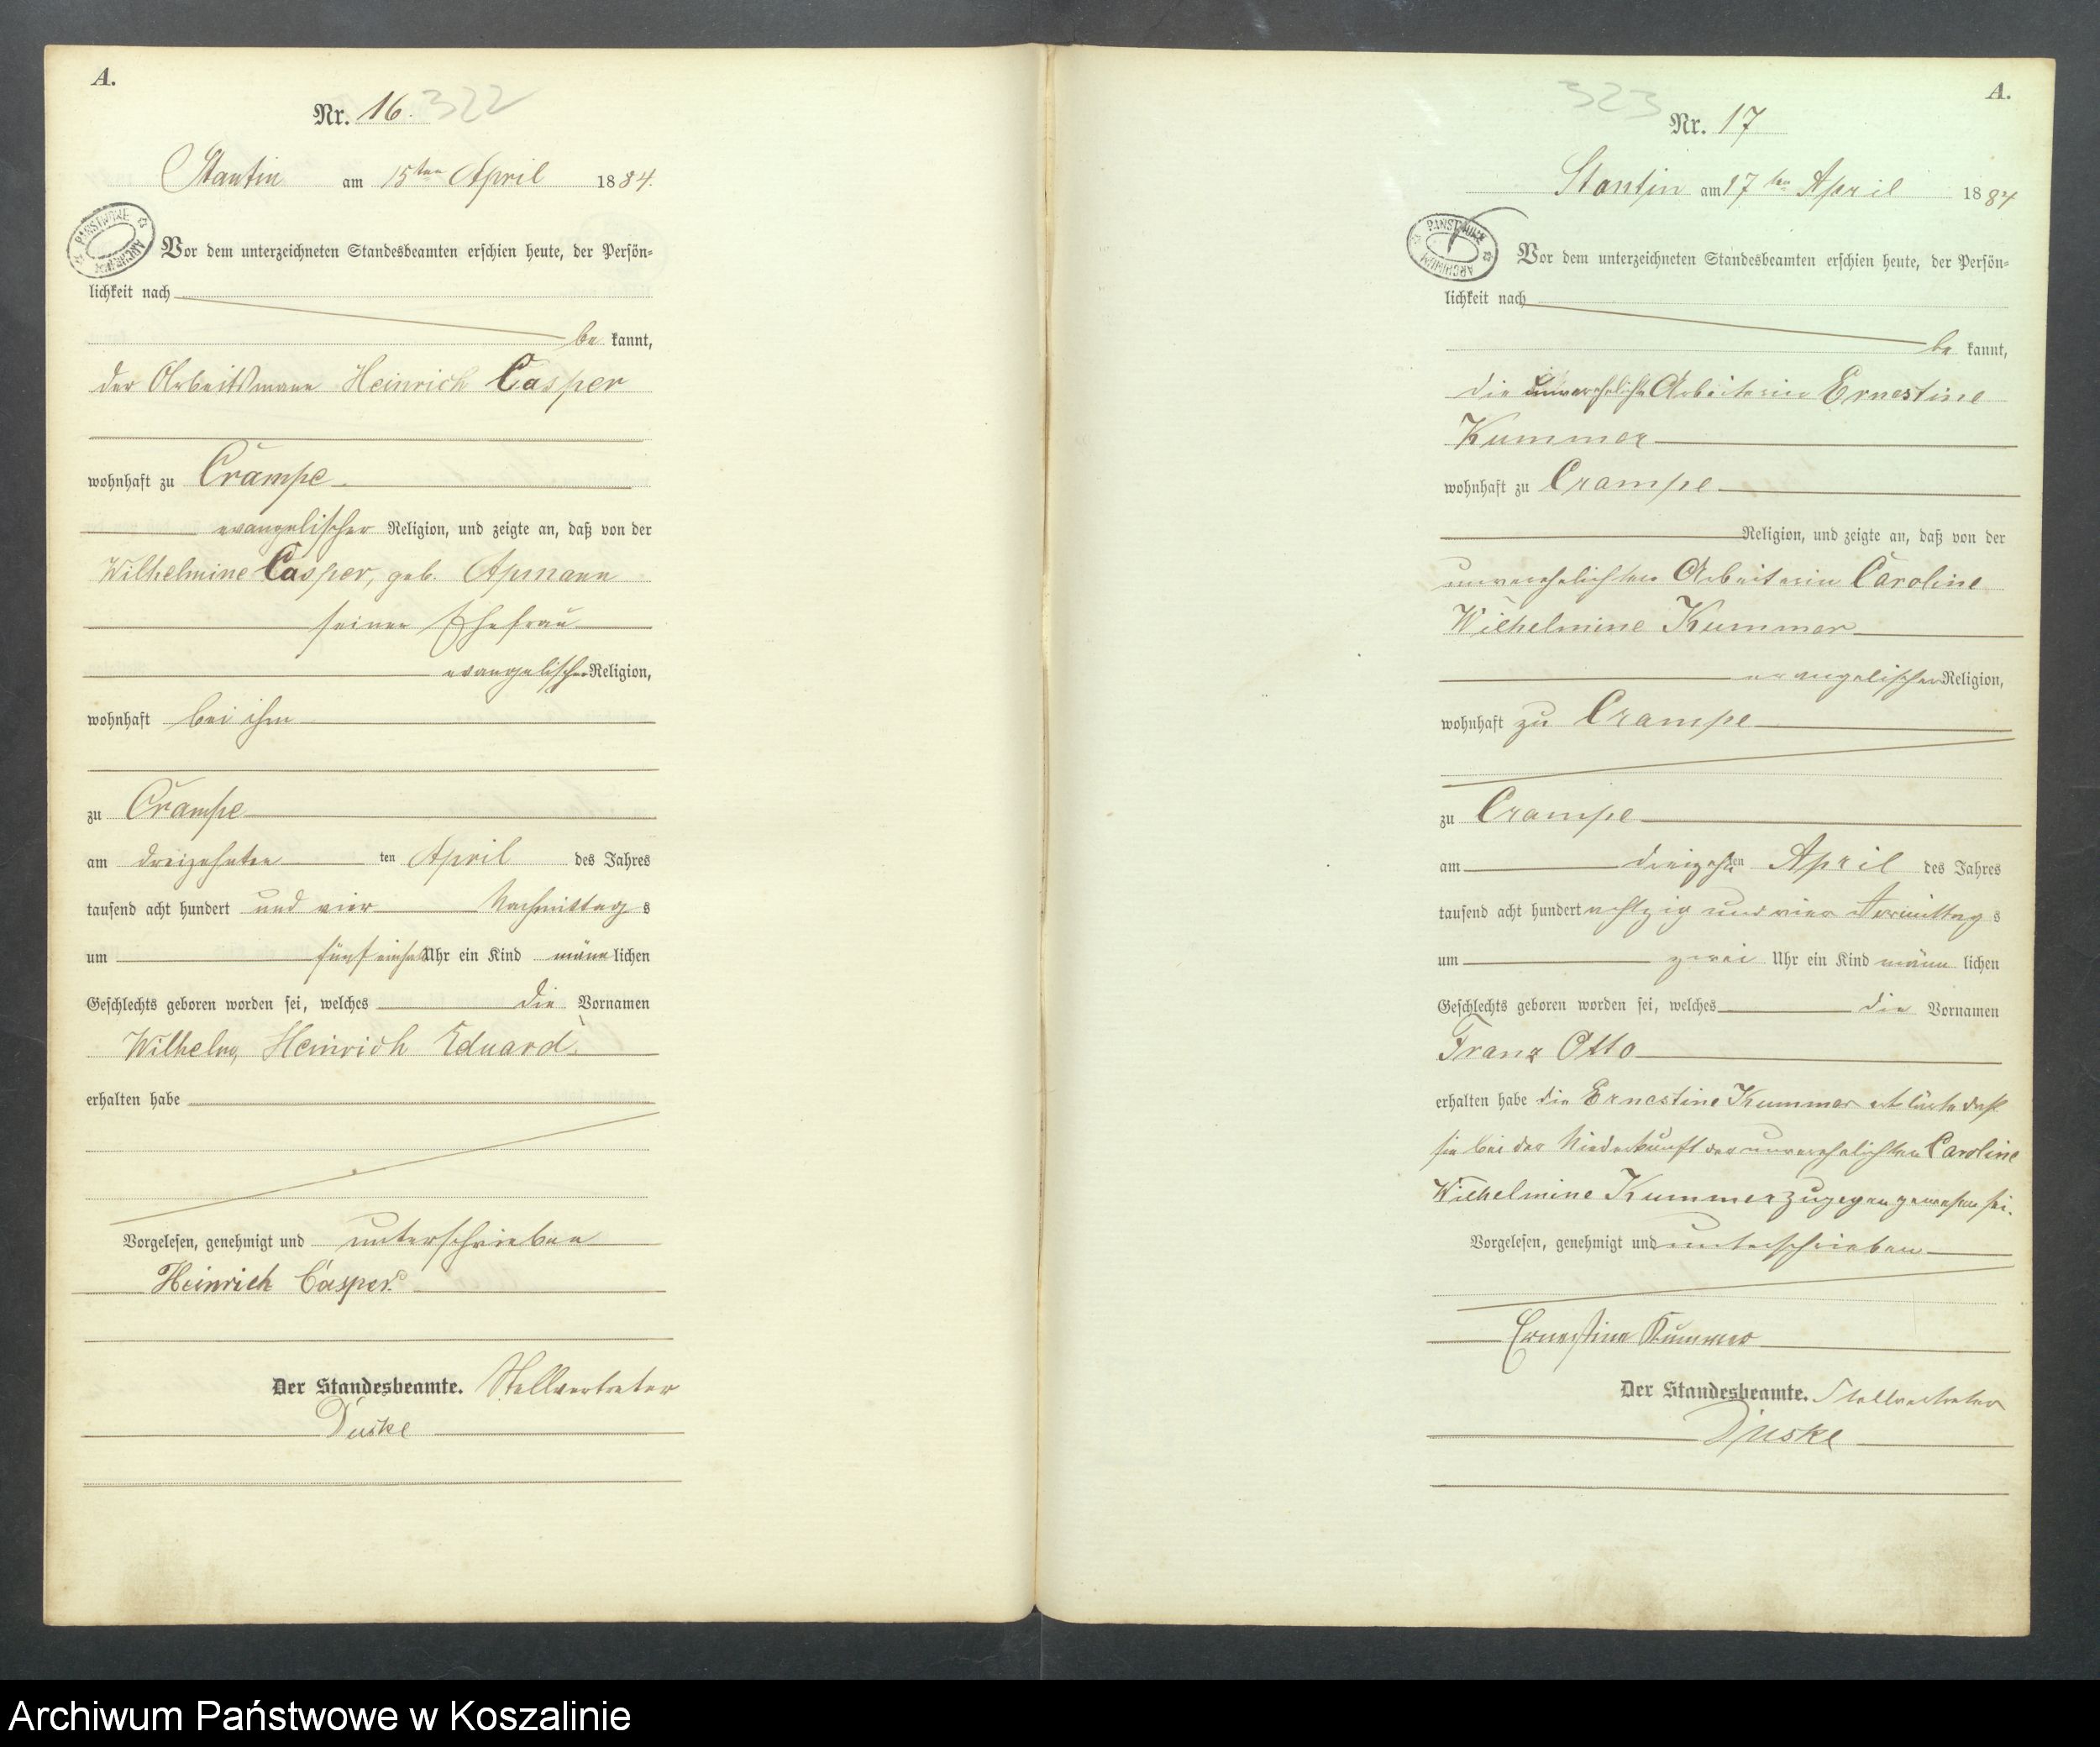 A.
Nr. 16. 322
Stantin am 15ten April 1884.
PAŃSTWOWE ARCHIWUM
Vor dem unterzeichneten Standesbeamten erschien heute, der Persön-
lichkeit nach
be kannt,
der Arbeitsmann Heinrich Casper
wohnhaft zu Crampe
evangelischer Religion, und zeigte an, daß von der
Wilhelmine Casper, geb. Apmann
seiner Ehefrau
evangelischer Religion,
wohnhaft bei ihm
zu Crampe
am dreizehnten ten April des Jahres
tausend acht hundert und vier Nachmittag s
um fünf einhalb Uhr ein Kind männ lichen
Geschlechts geboren worden sei, welches die Vornamen
Wilhelm Heinrich Eduard.
erhalten habe
Vorgelesen, genehmigt und unterschrieben
Heinrich Casper.
Der Standesbeamte. Stellvertreter
Duske
A.
323
Nr. 17
Stantin am 17ten April 1884
PAŃSTWOWE ARCHIWUM
Vor dem unterzeichneten Standesbeamten erschien heute, der Persön-
lichkeit nach
be kannt,
die unverehelichte Arbeiterin Ernestine
Kummer
wohnhaft zu Crampe
Religion, und zeigte an, daß von der
unverehelichten Arbeiterin Caroline
Wilhelmine Kummer
evangelischer Religion,
wohnhaft zu Crampe
zu Crampe
am dreizehn ten April des Jahres
tausend acht hundert achtzig und vier Vormittag s
um zwei Uhr ein Kind männ lichen
Geschlechts geboren worden sei, welches die Vornamen
Franz Otto
erhalten habe die Ernestine Kummer erklärte daß
sie bei der Niederkunft der unverehelichten Caroline
Wilhelmine Kummer zugegen gewesen sei.
Vorgelesen, genehmigt und unterschrieben
Ernestine Kummer
Der Standesbeamte. Stellvertreter
Duske
Archiwum Państwowe w Koszalinie